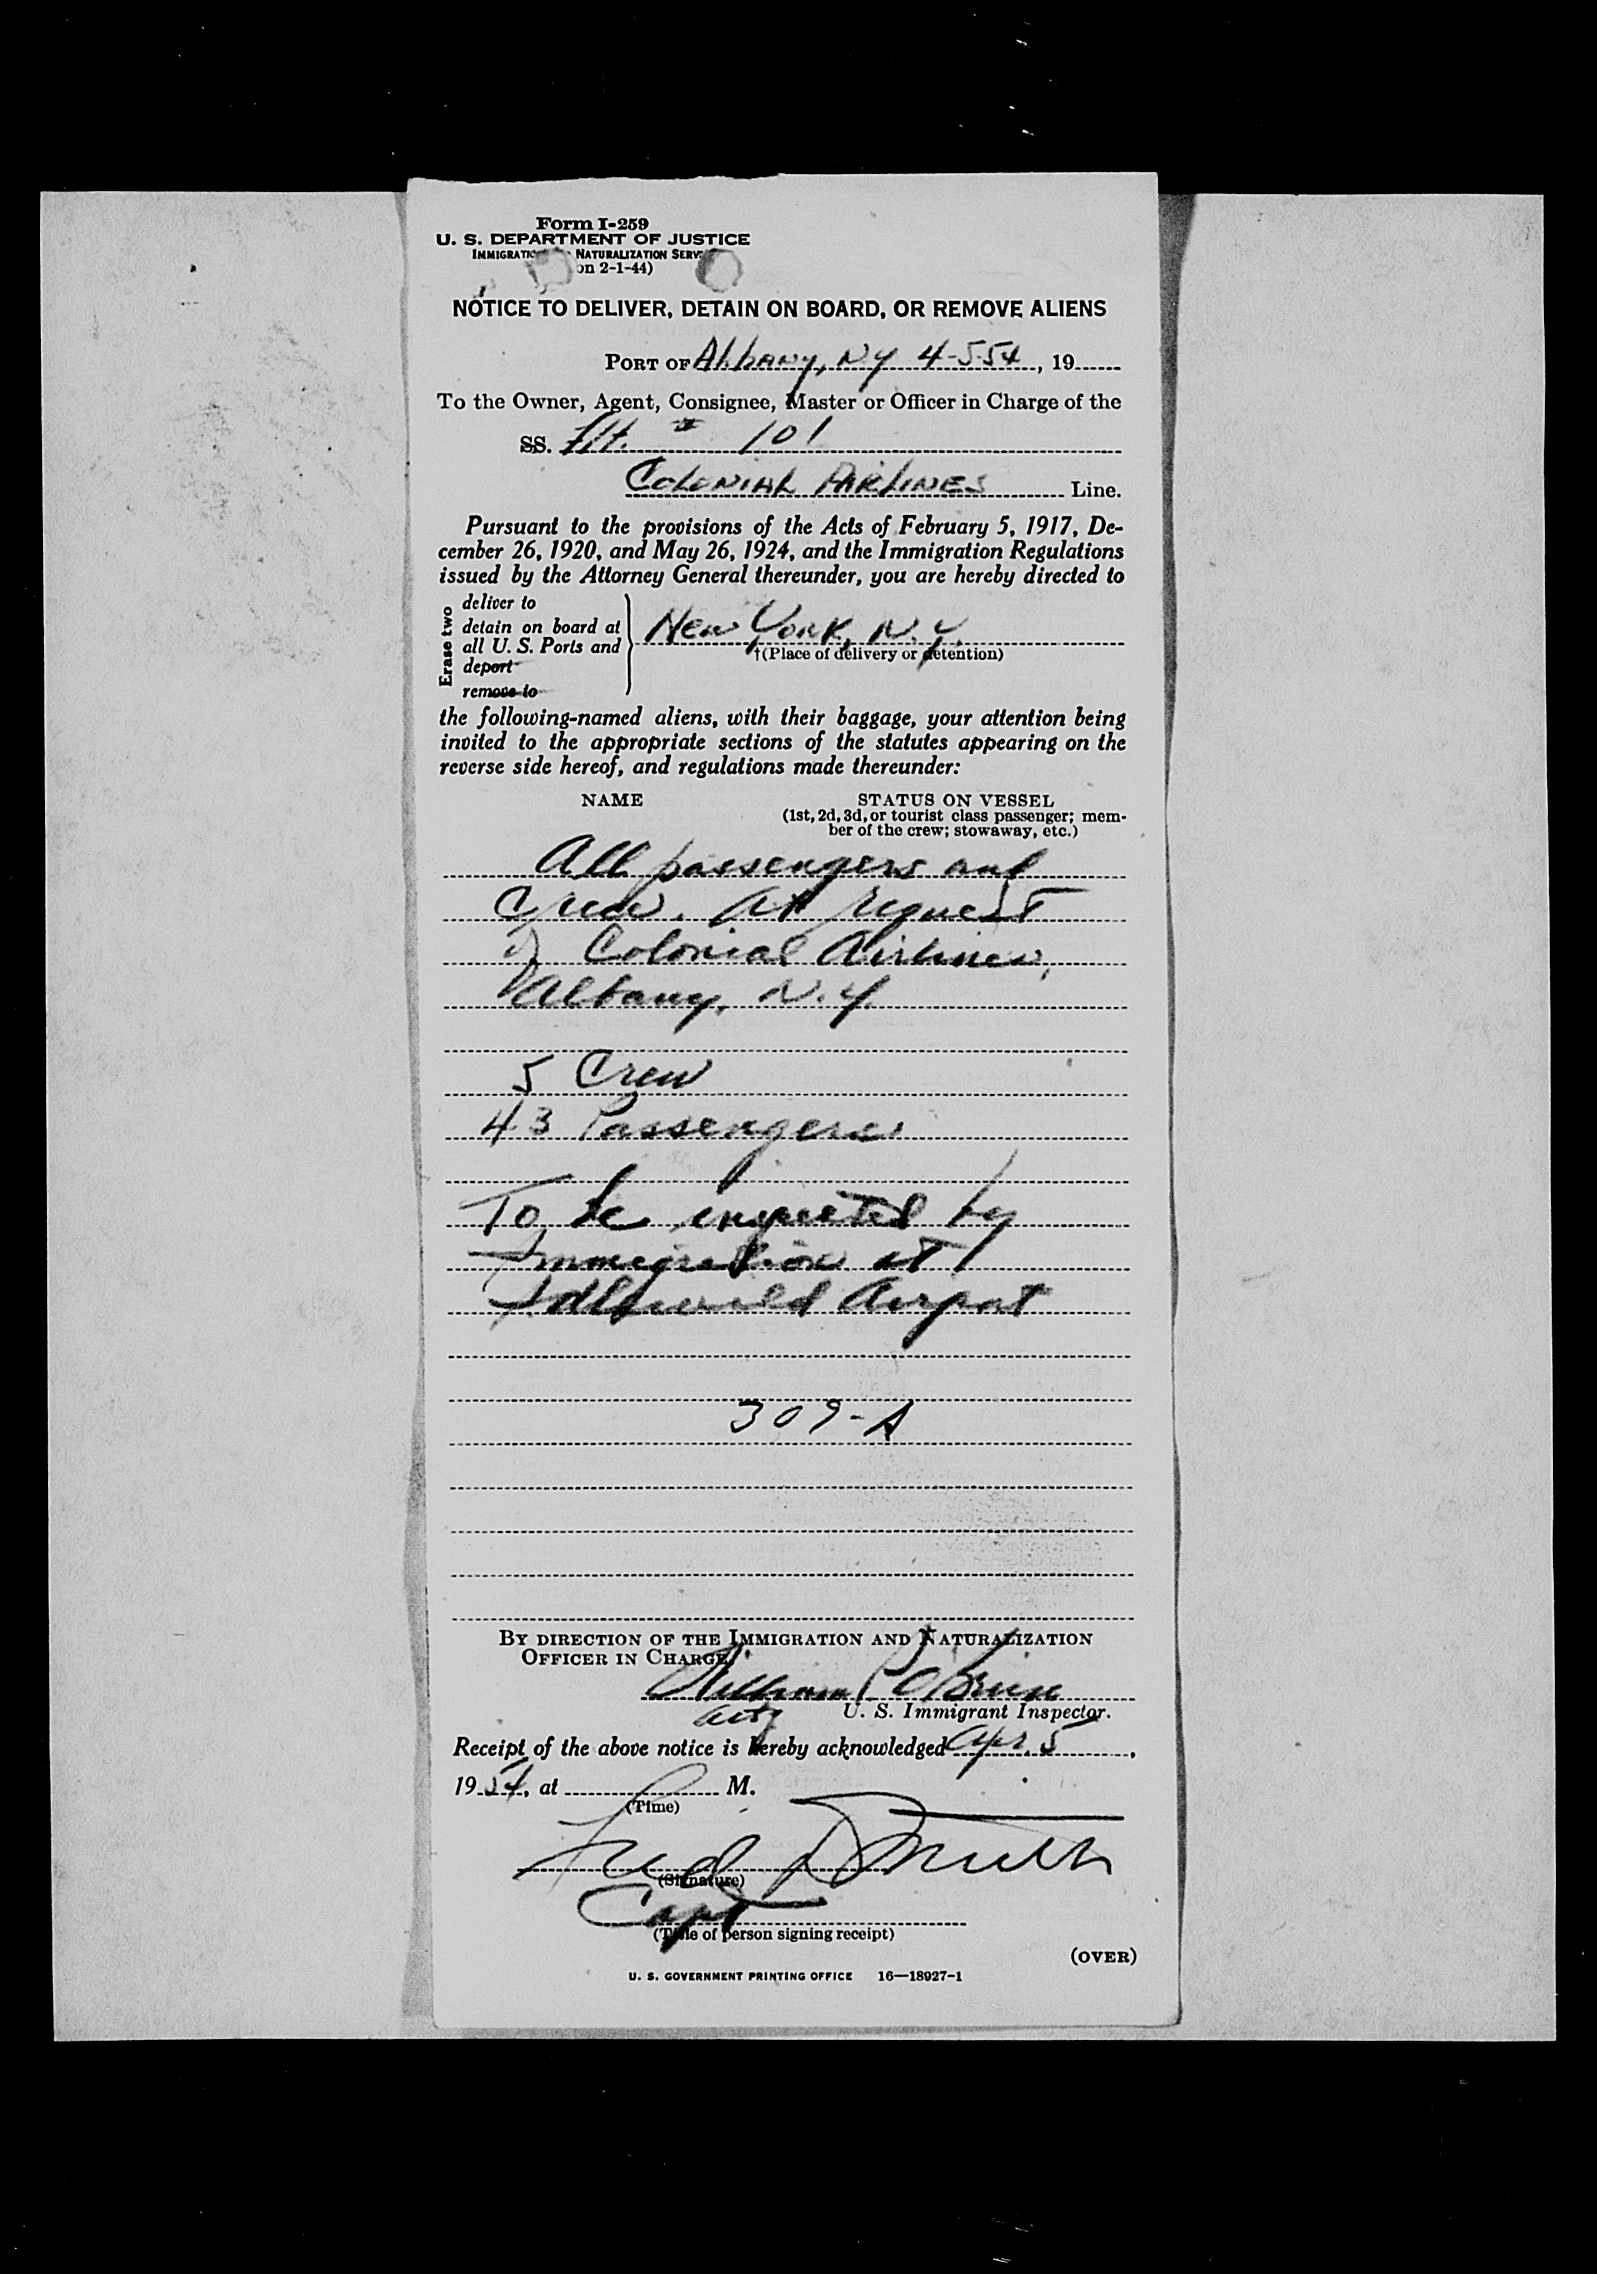 Form I-259
U. S. DEPARTMENT OF JUSTICE
IMMIGRATION NATURALIZATION SERV
on 2-1-44)
NOTICE TO DELIVER, DETAIN ON BOARD, OR REMOVE ALIENS
PORT OF Albany, N.Y 4-5-54, 19
To the Owner, Agent, Consignee, Master or Officer in Charge of the
SS. Flt. # 101
COLONIAL AIRLINES Line.
Pursuant to the provisions of the Acts of February 5, 1917, De-
cember 26, 1920, and May 26, 1924, and the Immigration Regulations
issued by the Attorney General thereunder, you are hereby directed to
Erase two
deliver to
detain on board at
all U. S. Ports and
deport
remove to
New York, N.Y.
†(Place of delivery or detention)
the following-named aliens, with their baggage, your attention being
invited to the appropriate sections of the statutes appearing on the
reverse side hereof, and regulations made thereunder:
NAME STATUS ON VESSEL
(1st, 2d, 3d, or tourist class passenger; mem-
ber of the crew; stowaway, etc.)
All passengers and
Crew. At request
of Colonial Airlines,
Albany, N.Y.
5 Crew
43 Passengers
To be inspected by
Immigration at
Idlewild Airport
309-A
BY DIRECTION OF THE IMMIGRATION AND NATURALIZATION
OFFICER IN CHARGE
William P O'Brien
Actg U. S. Immigrant Inspector.
Receipt of the above notice is hereby acknowledged Apr. 5,
1954, at P M.
(Time)
Fred D Smith
(Signature)
Capt
(Title of person signing receipt)
(OVER)
U. S. GOVERNMENT PRINTING OFFICE 16—18927-1